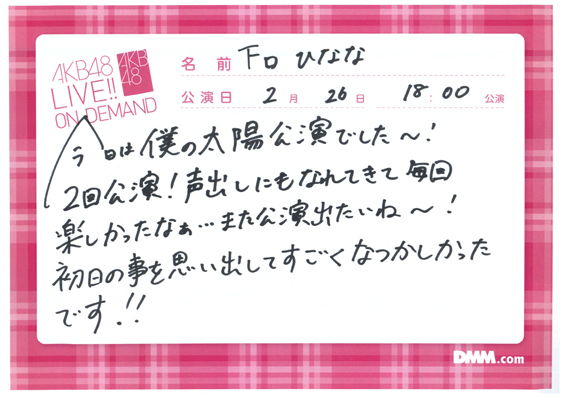 AKB48
LIVE!!
ON DEMAND
AKB
48
名 前 下口 ひなな
公演日 2 月 26 日 18:00 公演
今日は僕の太陽公演でした〜!
2回公演!声出しにもなれてきて毎回
楽しかったなぁ…また公演出たいね〜!
初日の事を思い出してすごくなつかしかった
です!!
DMM.com